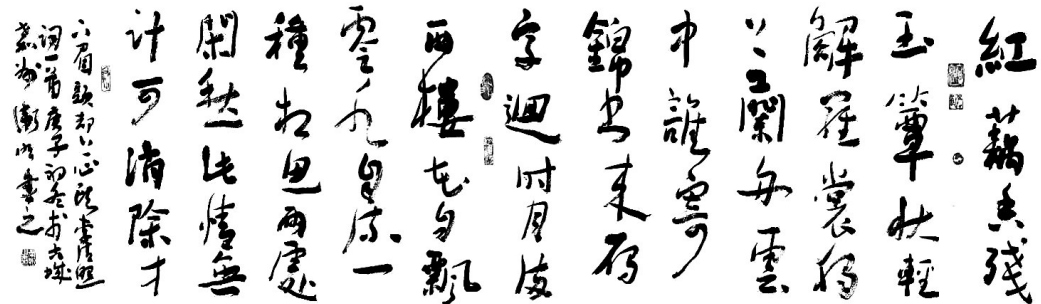 紅藕香殘
玉簟秋輕
解羅裳獨
上蘭舟雲
中誰寄
錦書來雁
字迴時月滿
西樓花自飄
零水自流一
種相思兩處
閑愁此情無
計可消除才
下眉頭却上心頭李清照
詞一首庚子初冬於古城
書之